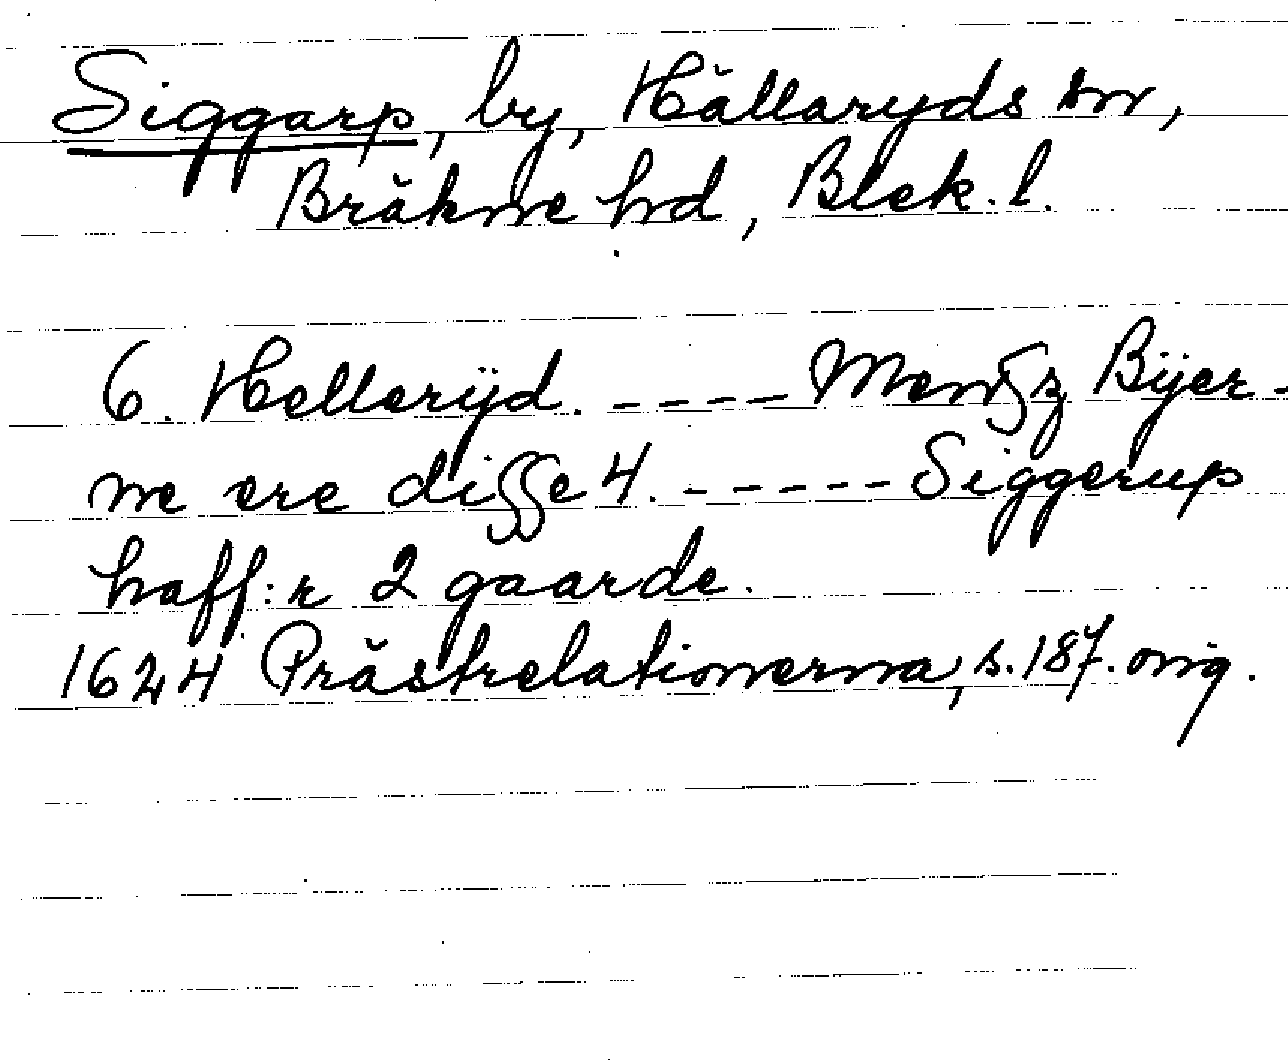 Siggarp, by, Hällaryds sn,
Bräkne hd, Blek. l.
6. Hellerÿd. - - - - Menſz Bÿer-
ne ere diſſe 4. - - - - - Siggerup
haff:r 2 gaarde.
1624 Prästrelationerna, s. 187. orig.